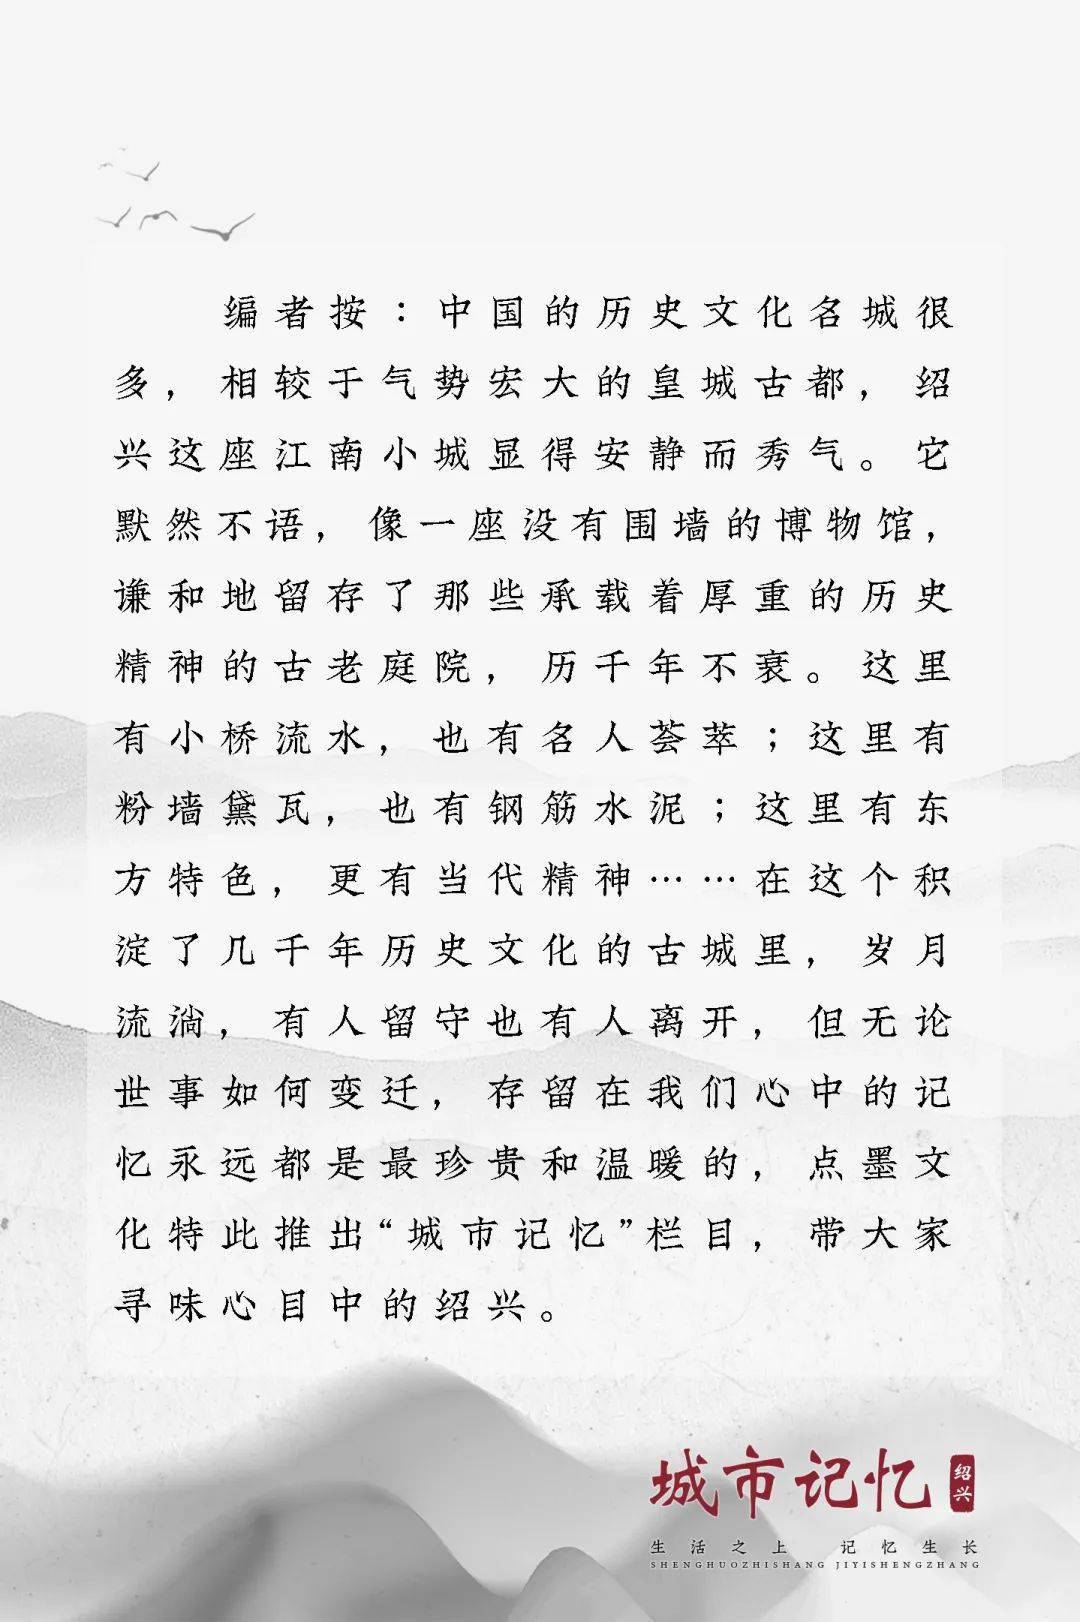 编者按：中国的历史文化名城很
多，相较于气势宏大的皇城古都，绍
兴这座江南小城显得安静而秀气。它
默然不语，像一座没有围墙的博物馆，
谦和地留存了那些承载着厚重的历史
精神的古老庭院，历千年不衰。这里
有小桥流水，也有名人荟萃；这里有
粉墙黛瓦，也有钢筋水泥；这里有东
方特色，更有当代精神……在这个积
淀了几千年历史文化的古城里，岁月
流淌，有人留守也有人离开，但无论
世事如何变迁，存留在我们心中的记
忆永远都是最珍贵和温暖的，点墨文
化特此推出“城市记忆”栏目，带大家
寻味心目中的绍兴。
城市记忆 绍兴
生活之上 记忆生长
SHENGHUOZHISHANG JIYISHENGZHANG